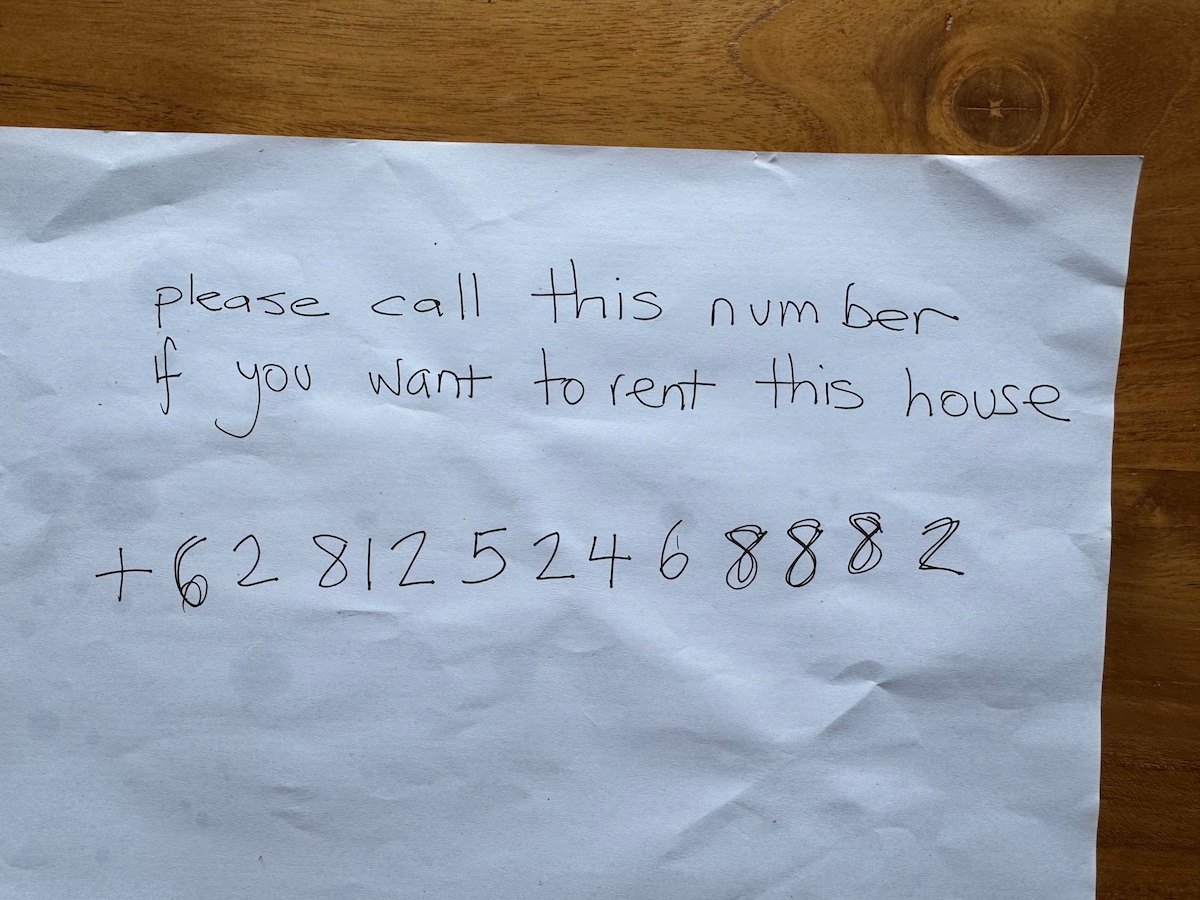 please call this number
if you want to rent this house
+62 812 5246 8882